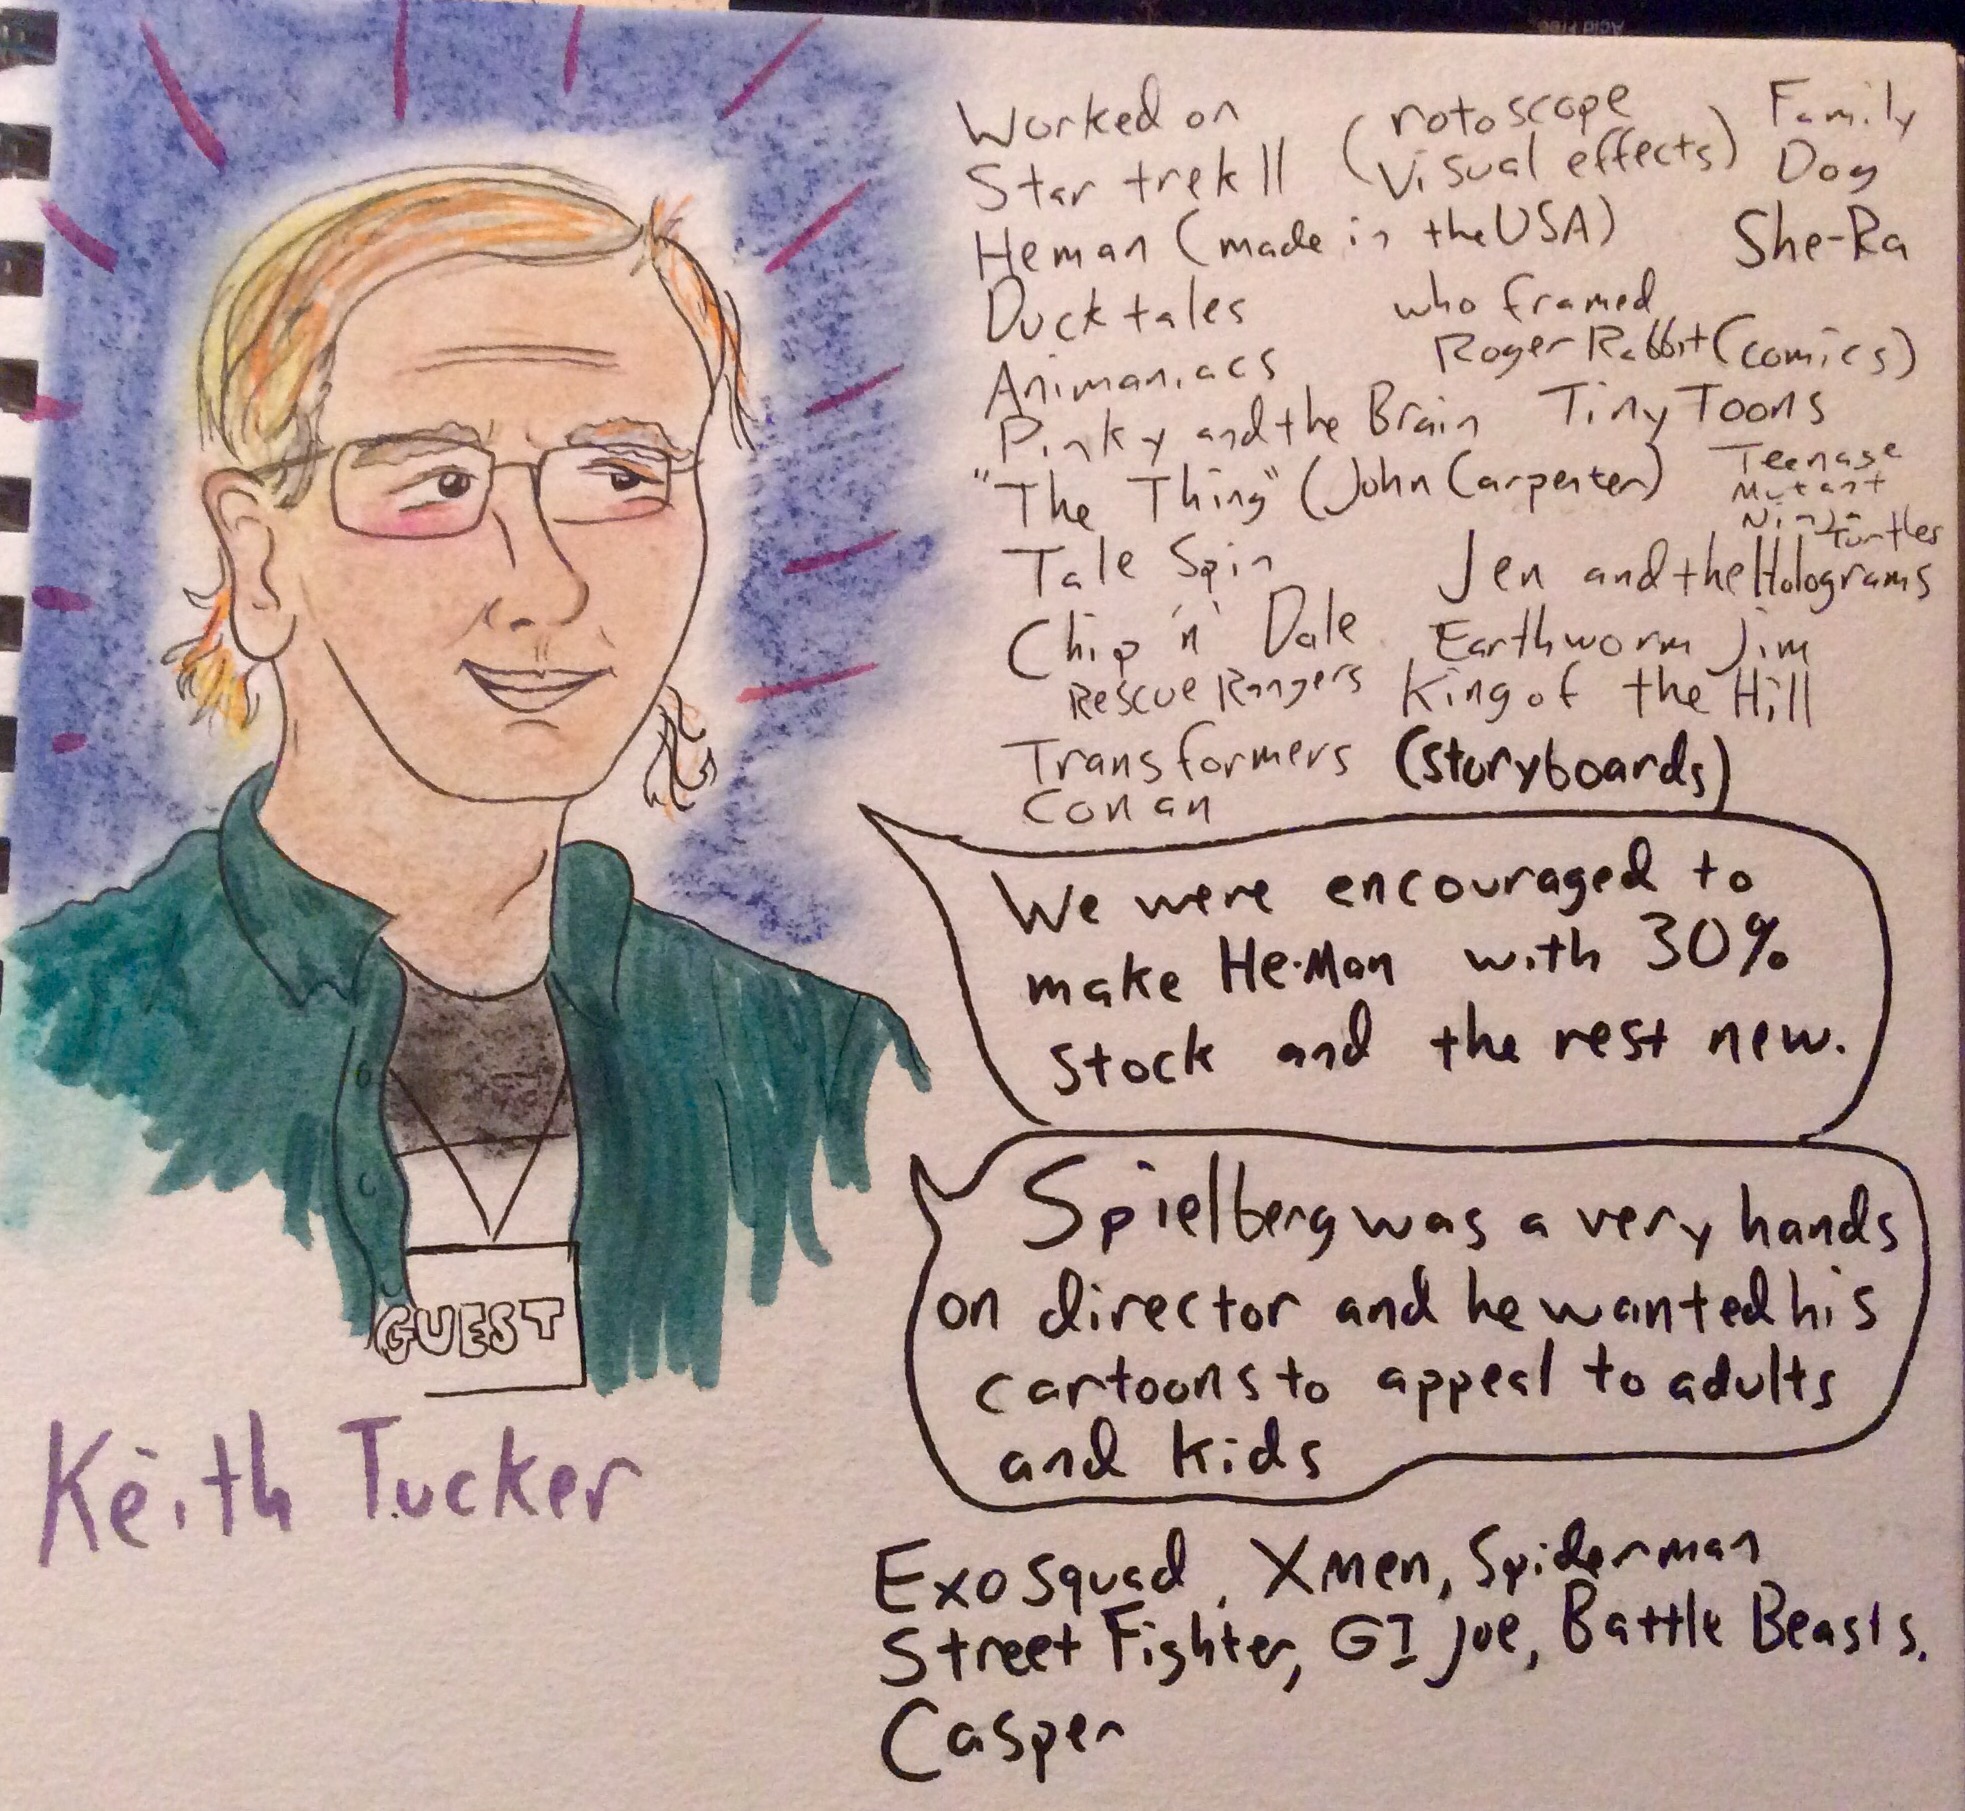 Acid Free
Worked on
Star trek II (rotoscope
visual effects)
Family
Dog
Heman (made in the USA)
She-Ra
Ducktales
who framed
Roger Rabbit (comics)
Animaniacs
Pinky and the Brain
Tiny Toons
"The Thing" (John Carpenter)
Teenage
Mutant
Ninja
Turtles
Tale Spin
Jen and the Holograms
Chip 'n' Dale
Rescue Rangers
Earthworm Jim
King of the Hill
Transformers (storyboards)
Conan
We were encouraged to
make He-Man with 30%
stock and the rest new.
Spielberg was a very hands
on director and he wanted his
cartoons to appeal to adults
and kids
GUEST
Keith Tucker
Exosquad, Xmen, Spiderman
Street Fighter, GI Joe, Battle Beasts.
Casper